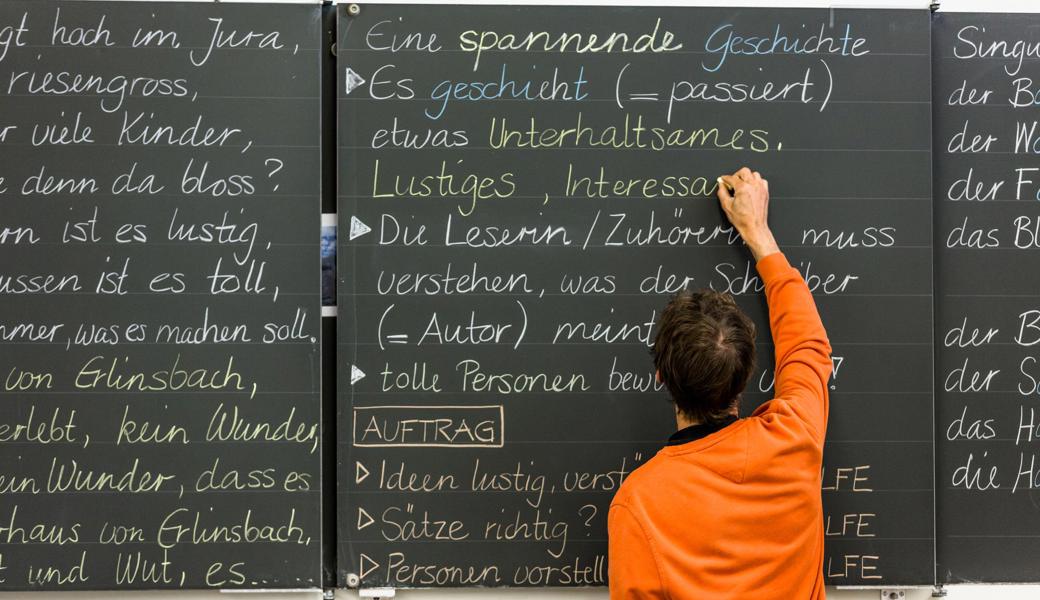 gt hoch im Jura,
riesengross,
r viele Kinder,
e denn da bloss?
rn ist es lustig,
ussen ist es toll,
mmer, was es machen soll.
von Erlinsbach,
erlebt, kein Wunder,
ein Wunder, dass es
rhaus von Erlinsbach,
t und Wut, es.....
Eine spannende Geschichte
Es geschieht (= passiert)
etwas Unterhaltsames.
Lustiges, Interessa
Die Leserin / Zuhörerin muss
verstehen, was der Schreiber
(= Autor) meint
tolle Personen bew ?
AUFTRAG
Ideen lustig, verst LFE
Sätze richtig? LFE
Personen vorstell LFE
Singu
der B
der W
der F
das Bl
der B
der S
das Ha
die Ha